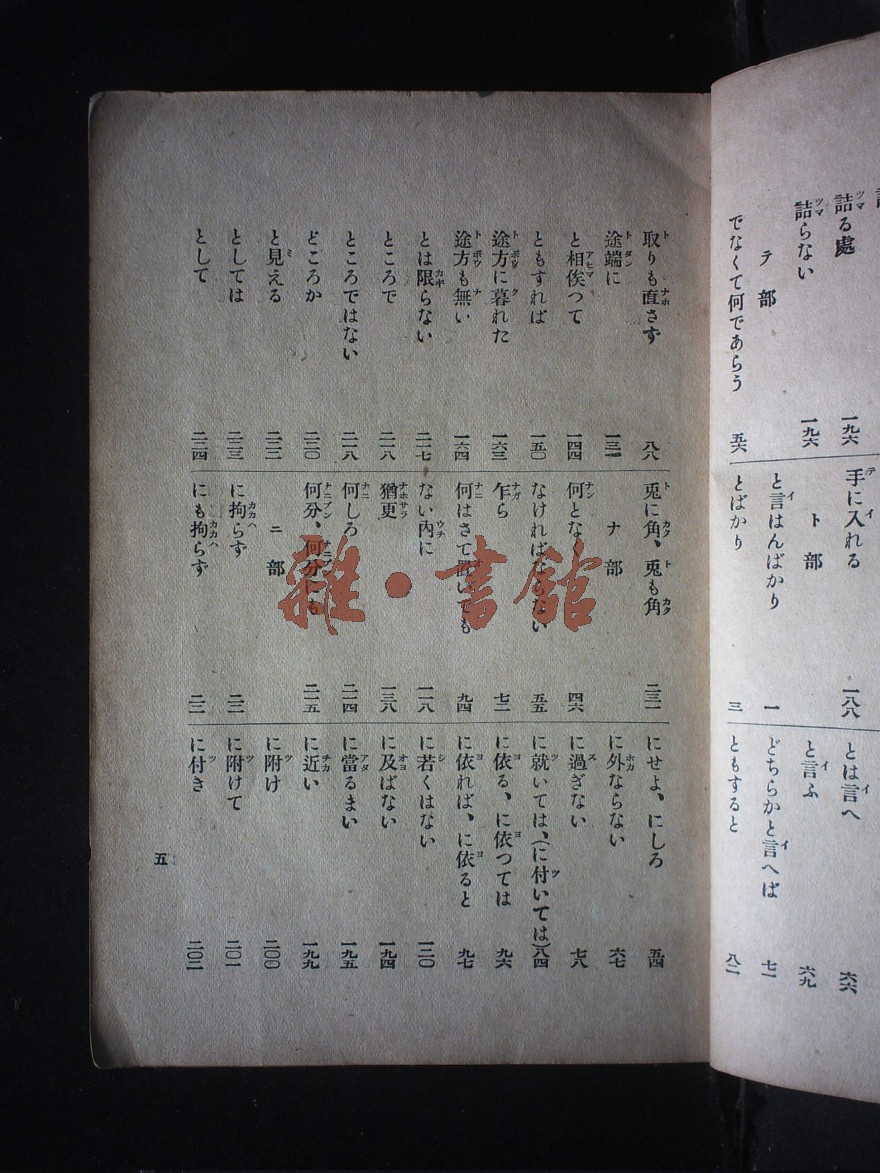 詰る處 一九六
詰らない 一九六
テ部
でなくて何であらう 五六
手に入れる 一八八
ト部
と言はんばかり 一
とばかり 三
とは言へ 六六
と言ふ 六九
どちらかと言へば 七一
ともすると 八二
取りも直さず 八八
途端に 一三一
と相俟つて 一四四
ともすれば 一五〇
途方に暮れた 一六三
途方も無い 一六四
とは限らない 二一七
ところで 二一八
ところではない 二一八
どころか 二二〇
と見える 二二二
としては 二二三
として 二二四
兎に角、兎も角 二三一
ナ部
何となく 四六
なければならない 五五
乍ら 七二
何はさて置いても 九四
ない内に 一一八
猶更 一三八
何しろ 二一四
何分、何分にも 二一五
ニ部
に拘らず 二二
にも拘らず 二二
にせよ、にしろ 五四
に外ならない 六七
に過ぎない 七八
に就いては、(に付いては) 八四
に依る、に依つては 九六
に依れば、に依ると 九七
に若くはない 一二〇
に及ばない 一九四
に當るまい 一九五
に近い 一九九
に附け 二〇〇
に附けて 二〇一
に付き 二〇二
五
雜・書館